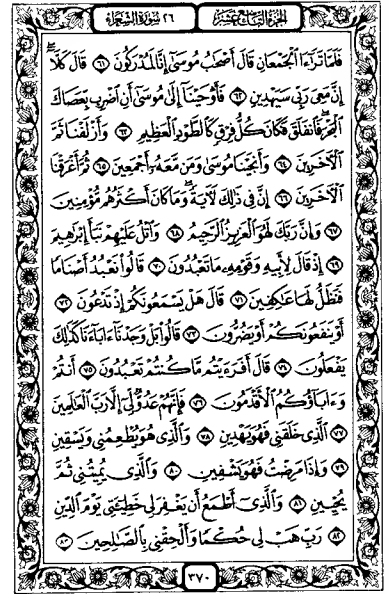 الجزء التاسع عشر
٢٦ سورة الشعراء
فَلَمَّا تَرَٰٓءَا ٱلۡجَمۡعَانِ قَالَ أَصۡحَٰبُ مُوسَىٰٓ إِنَّا لَمُدۡرَكُونَ ٦١ قَالَ كَلَّآۖ
إِنَّ مَعِيَ رَبِّي سَيَهۡدِينِ ٦٢ فَأَوۡحَيۡنَآ إِلَىٰ مُوسَىٰٓ أَنِ ٱضۡرِب بِّعَصَاكَ
ٱلۡبَحۡرَۖ فَٱنفَلَقَ فَكَانَ كُلُّ فِرۡقٖ كَٱلطَّوۡدِ ٱلۡعَظِيمِ ٦٣ وَأَزۡلَفۡنَا ثَمَّ
ٱلۡأٓخَرِينَ ٦٤ وَأَنجَيۡنَا مُوسَىٰ وَمَن مَّعَهُۥٓ أَجۡمَعِينَ ٦٥ ثُمَّ أَغۡرَقۡنَا
ٱلۡأٓخَرِينَ ٦٦ إِنَّ فِي ذَٰلِكَ لَأٓيَةٗۖ وَمَا كَانَ أَكۡثَرُهُم مُّؤۡمِنِينَ
٦٧ وَإِنَّ رَبَّكَ لَهُوَ ٱلۡعَزِيزُ ٱلرَّحِيمُ ٦٨ وَٱتۡلُ عَلَيۡهِمۡ نَبَأَ إِبۡرَٰهِيمَ
٦٩ إِذۡ قَالَ لِأَبِيهِ وَقَوۡمِهِۦ مَا تَعۡبُدُونَ ٧٠ قَالُواْ نَعۡبُدُ أَصۡنَامٗا
فَنَظَلُّ لَهَا عَٰكِفِينَ ٧١ قَالَ هَلۡ يَسۡمَعُونَكُمۡ إِذۡ تَدۡعُونَ ٧٢
أَوۡ يَنفَعُونَكُمۡ أَوۡ يَضُرُّونَ ٧٣ قَالُواْ بَلۡ وَجَدۡنَآ ءَابَآءَنَا كَذَٰلِكَ
يَفۡعَلُونَ ٧٤ قَالَ أَفَرَءَيۡتُم مَّا كُنتُمۡ تَعۡبُدُونَ ٧٥ أَنتُمۡ
وَءَابَآؤُكُمُ ٱلۡأَقۡدَمُونَ ٧٦ فَإِنَّهُمۡ عَدُوّٞ لِّيٓ إِلَّا رَبَّ ٱلۡعَٰلَمِينَ
٧٧ ٱلَّذِي خَلَقَنِي فَهُوَ يَهۡدِينِ ٧٨ وَٱلَّذِي هُوَ يُطۡعِمُنِي وَيَسۡقِينِ
٧٩ وَإِذَا مَرِضۡتُ فَهُوَ يَشۡفِينِ ٨٠ وَٱلَّذِي يُمِيتُنِي ثُمَّ
يُحۡيِينِ ٨١ وَٱلَّذِيٓ أَطۡمَعُ أَن يَغۡفِرَ لِي خَطِيٓـَٔتِي يَوۡمَ ٱلدِّينِ
٨٢ رَبِّ هَبۡ لِي حُكۡمٗا وَأَلۡحِقۡنِي بِٱلصَّٰلِحِينَ ٨٣
٣٧٠